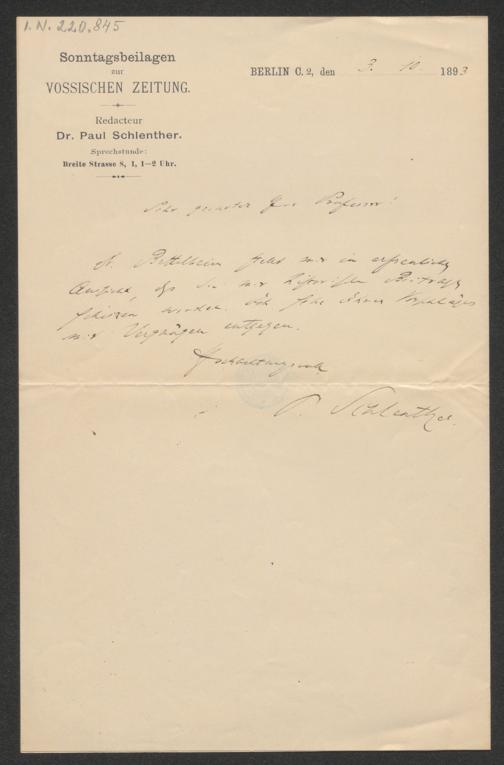 I.N. 220.845
Sonntagsbeilagen
zur
VOSSISCHEN ZEITUNG.
Redacteur
Dr. Paul Schlenther.
Sprechstunde:
Breite Strasse 8, 1, 1—2 Uhr.
BERLIN C. 2, den 3. 10. 1893
Sehr geehrter Herr Professor!
Dr. Bettelheim stellt mir in erfreuliche
Aussicht, daß Sie mir Beiträge
schicken werden. Ich sehe
mit Vergnügen entgegen.
Hochachtungsvoll
P. Schlenther.